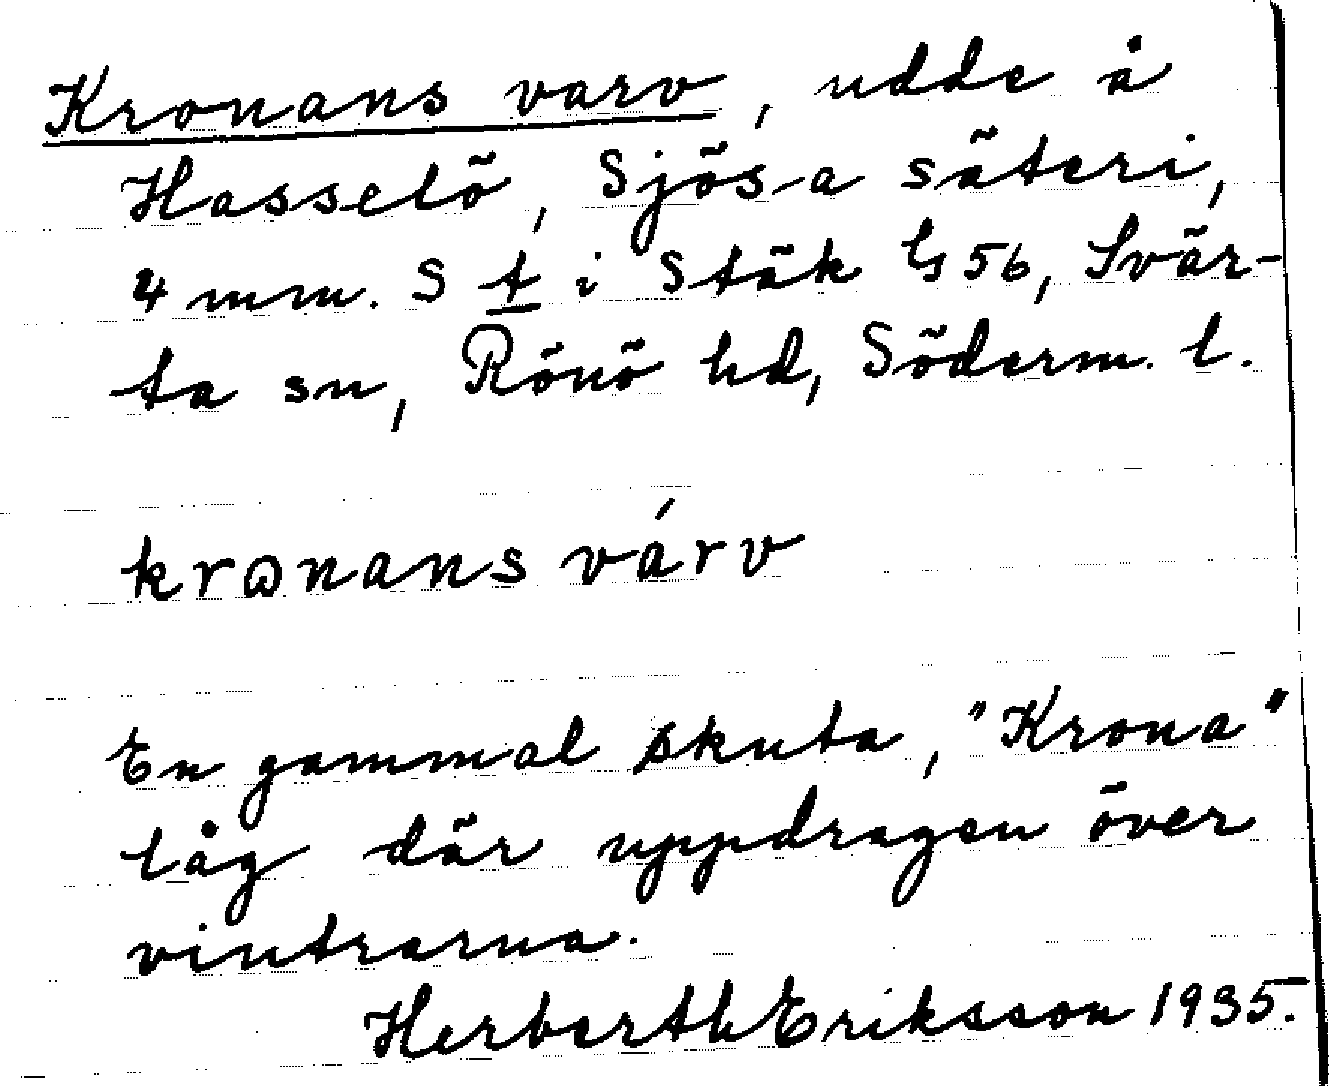 Kronans varv, udde å
Hasselö, Sjösa säteri,
4 mm. S t i Stäk G 56, Svär-
ta sn, Rönö hd, Söderm. l.
krωnans várv
En gammal skuta, "Krona"
låg där uppdragen över
vintrarna.
Herberth Eriksson 1935.